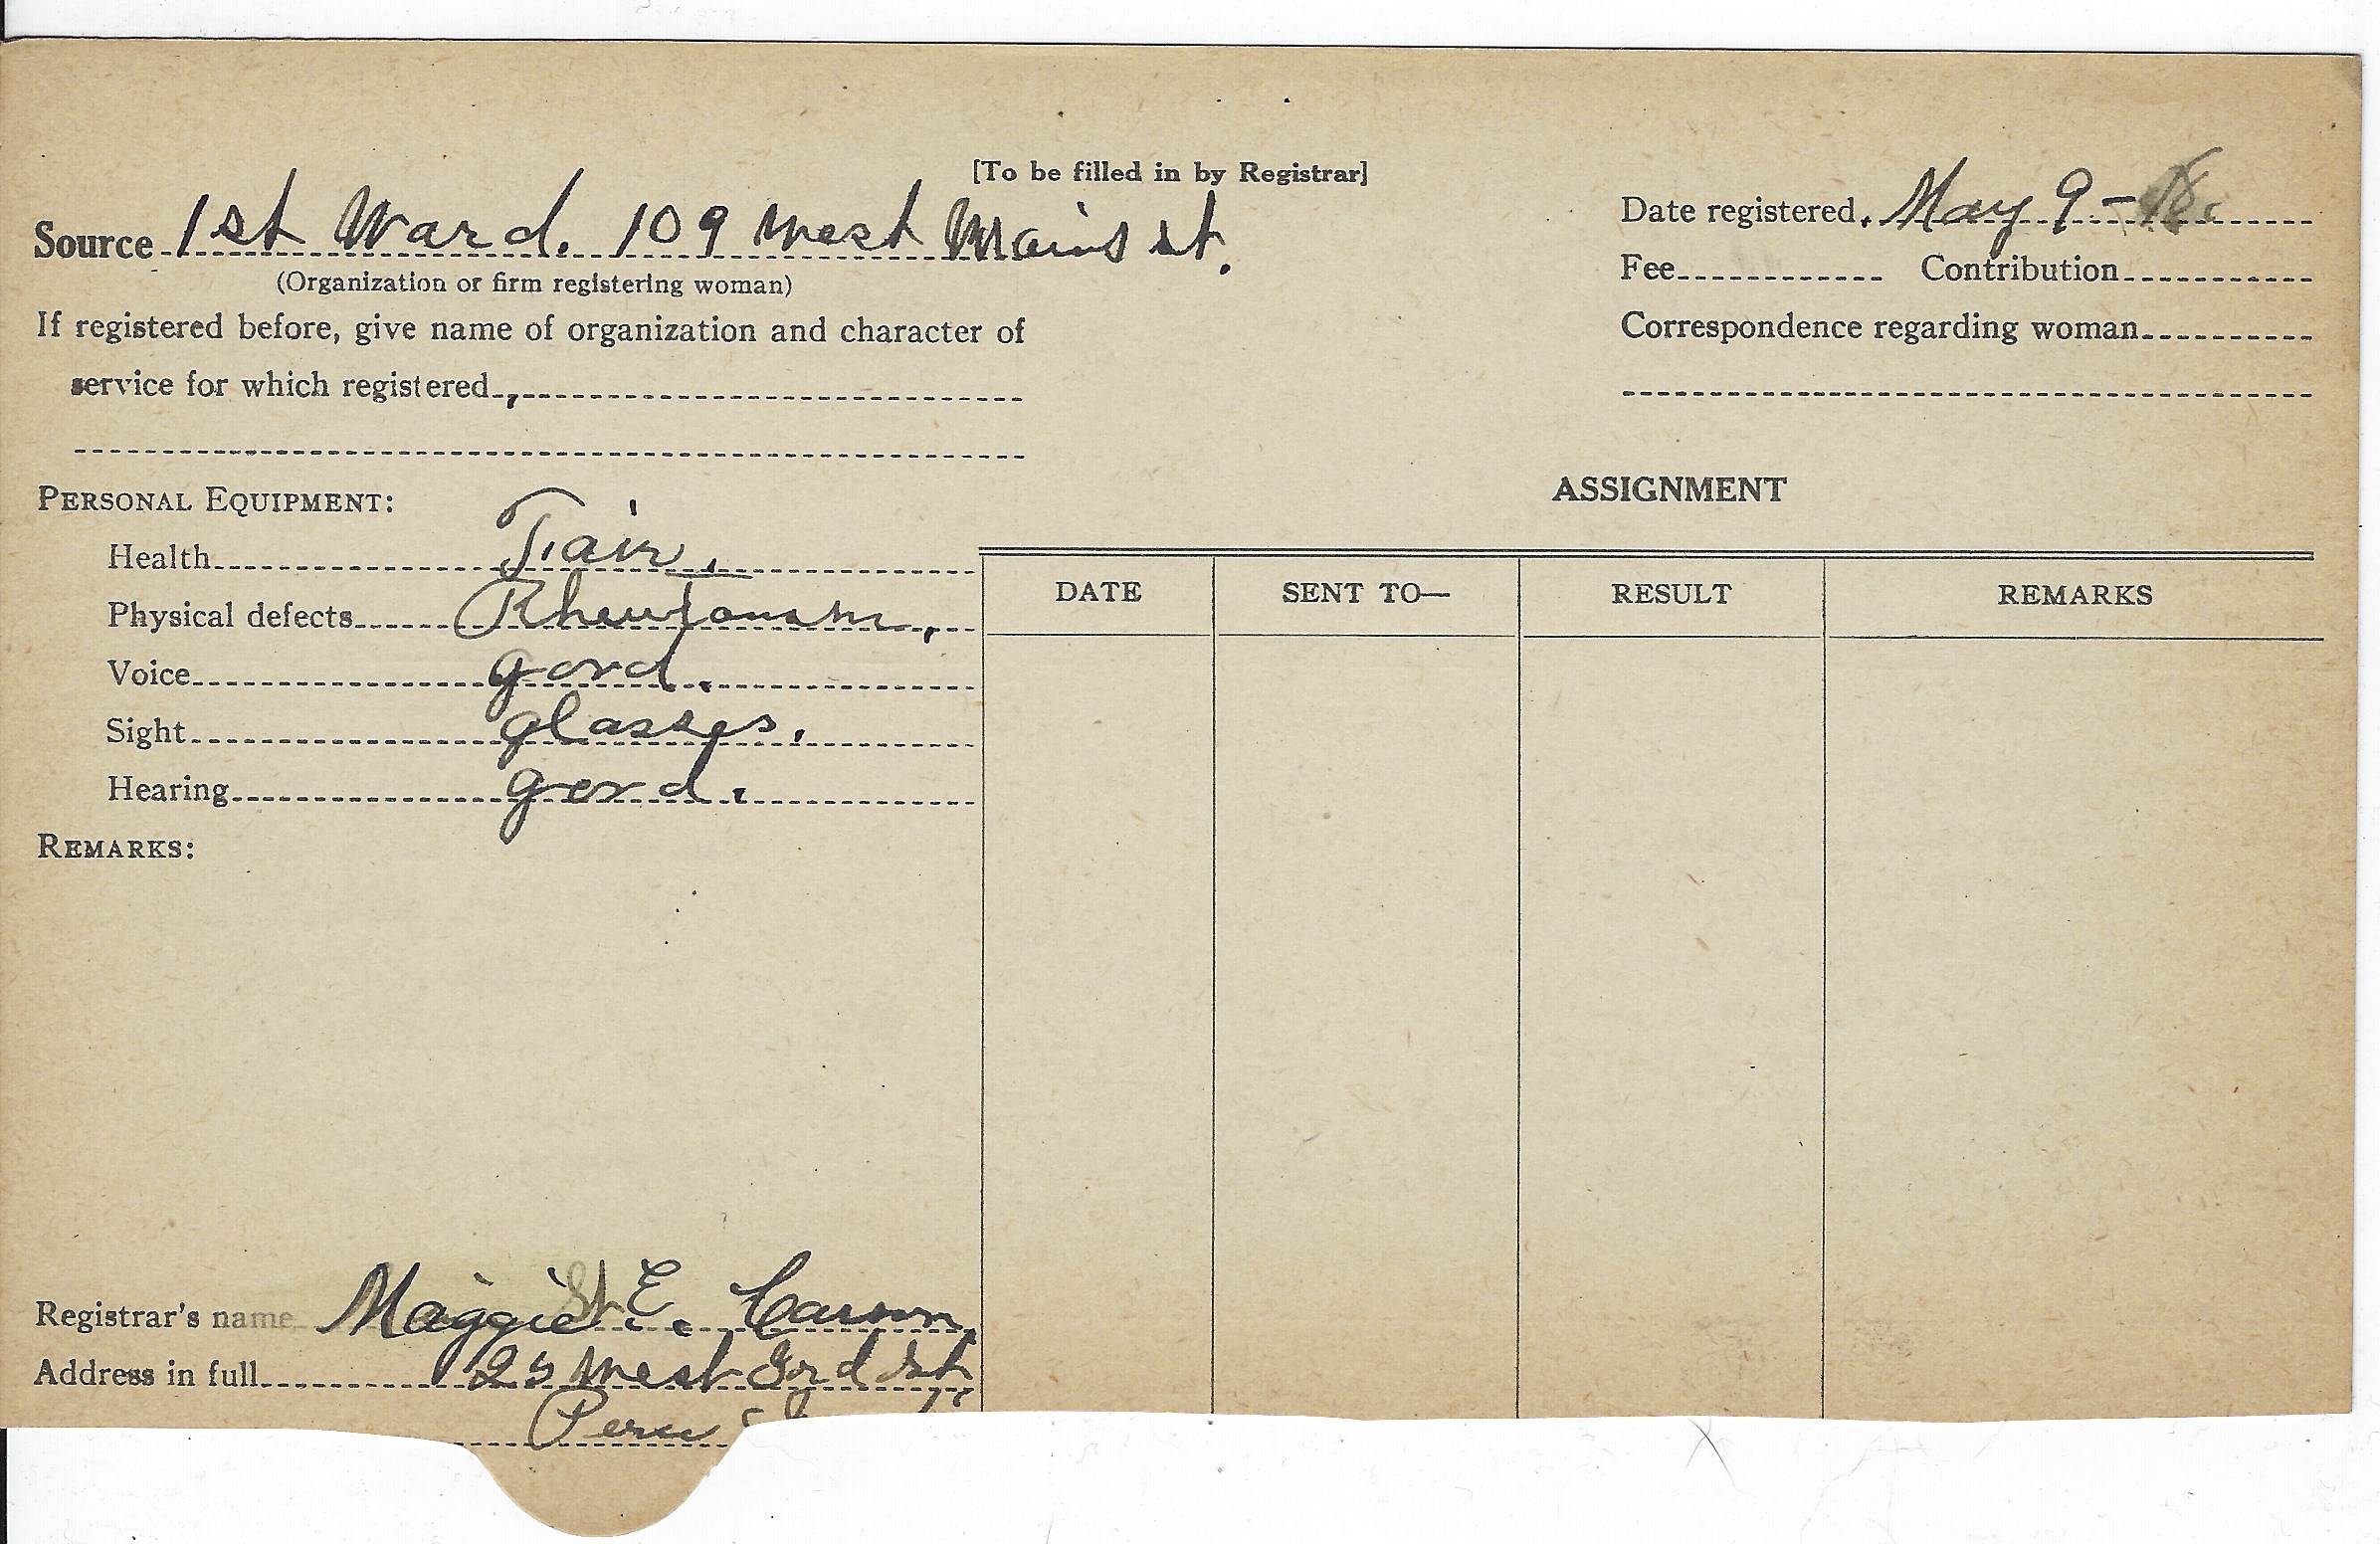 [To be filled in by Registrar]
Source 1st Ward. 109 West Main St.
(Organization or firm registering woman)
If registered before, give name of organization and character of
service for which registered
Date registered May 9-18.
Fee Contribution
Correspondence regarding woman
PERSONAL EQUIPMENT:
Health Fair.
Physical defects
Voice good.
Sight glasses.
Hearing good.
REMARKS:
ASSIGNMENT
DATE SENT TO— RESULT REMARKS
Registrar's name Maggie E. Carson
Address in full 25 West 3rd St
Peru